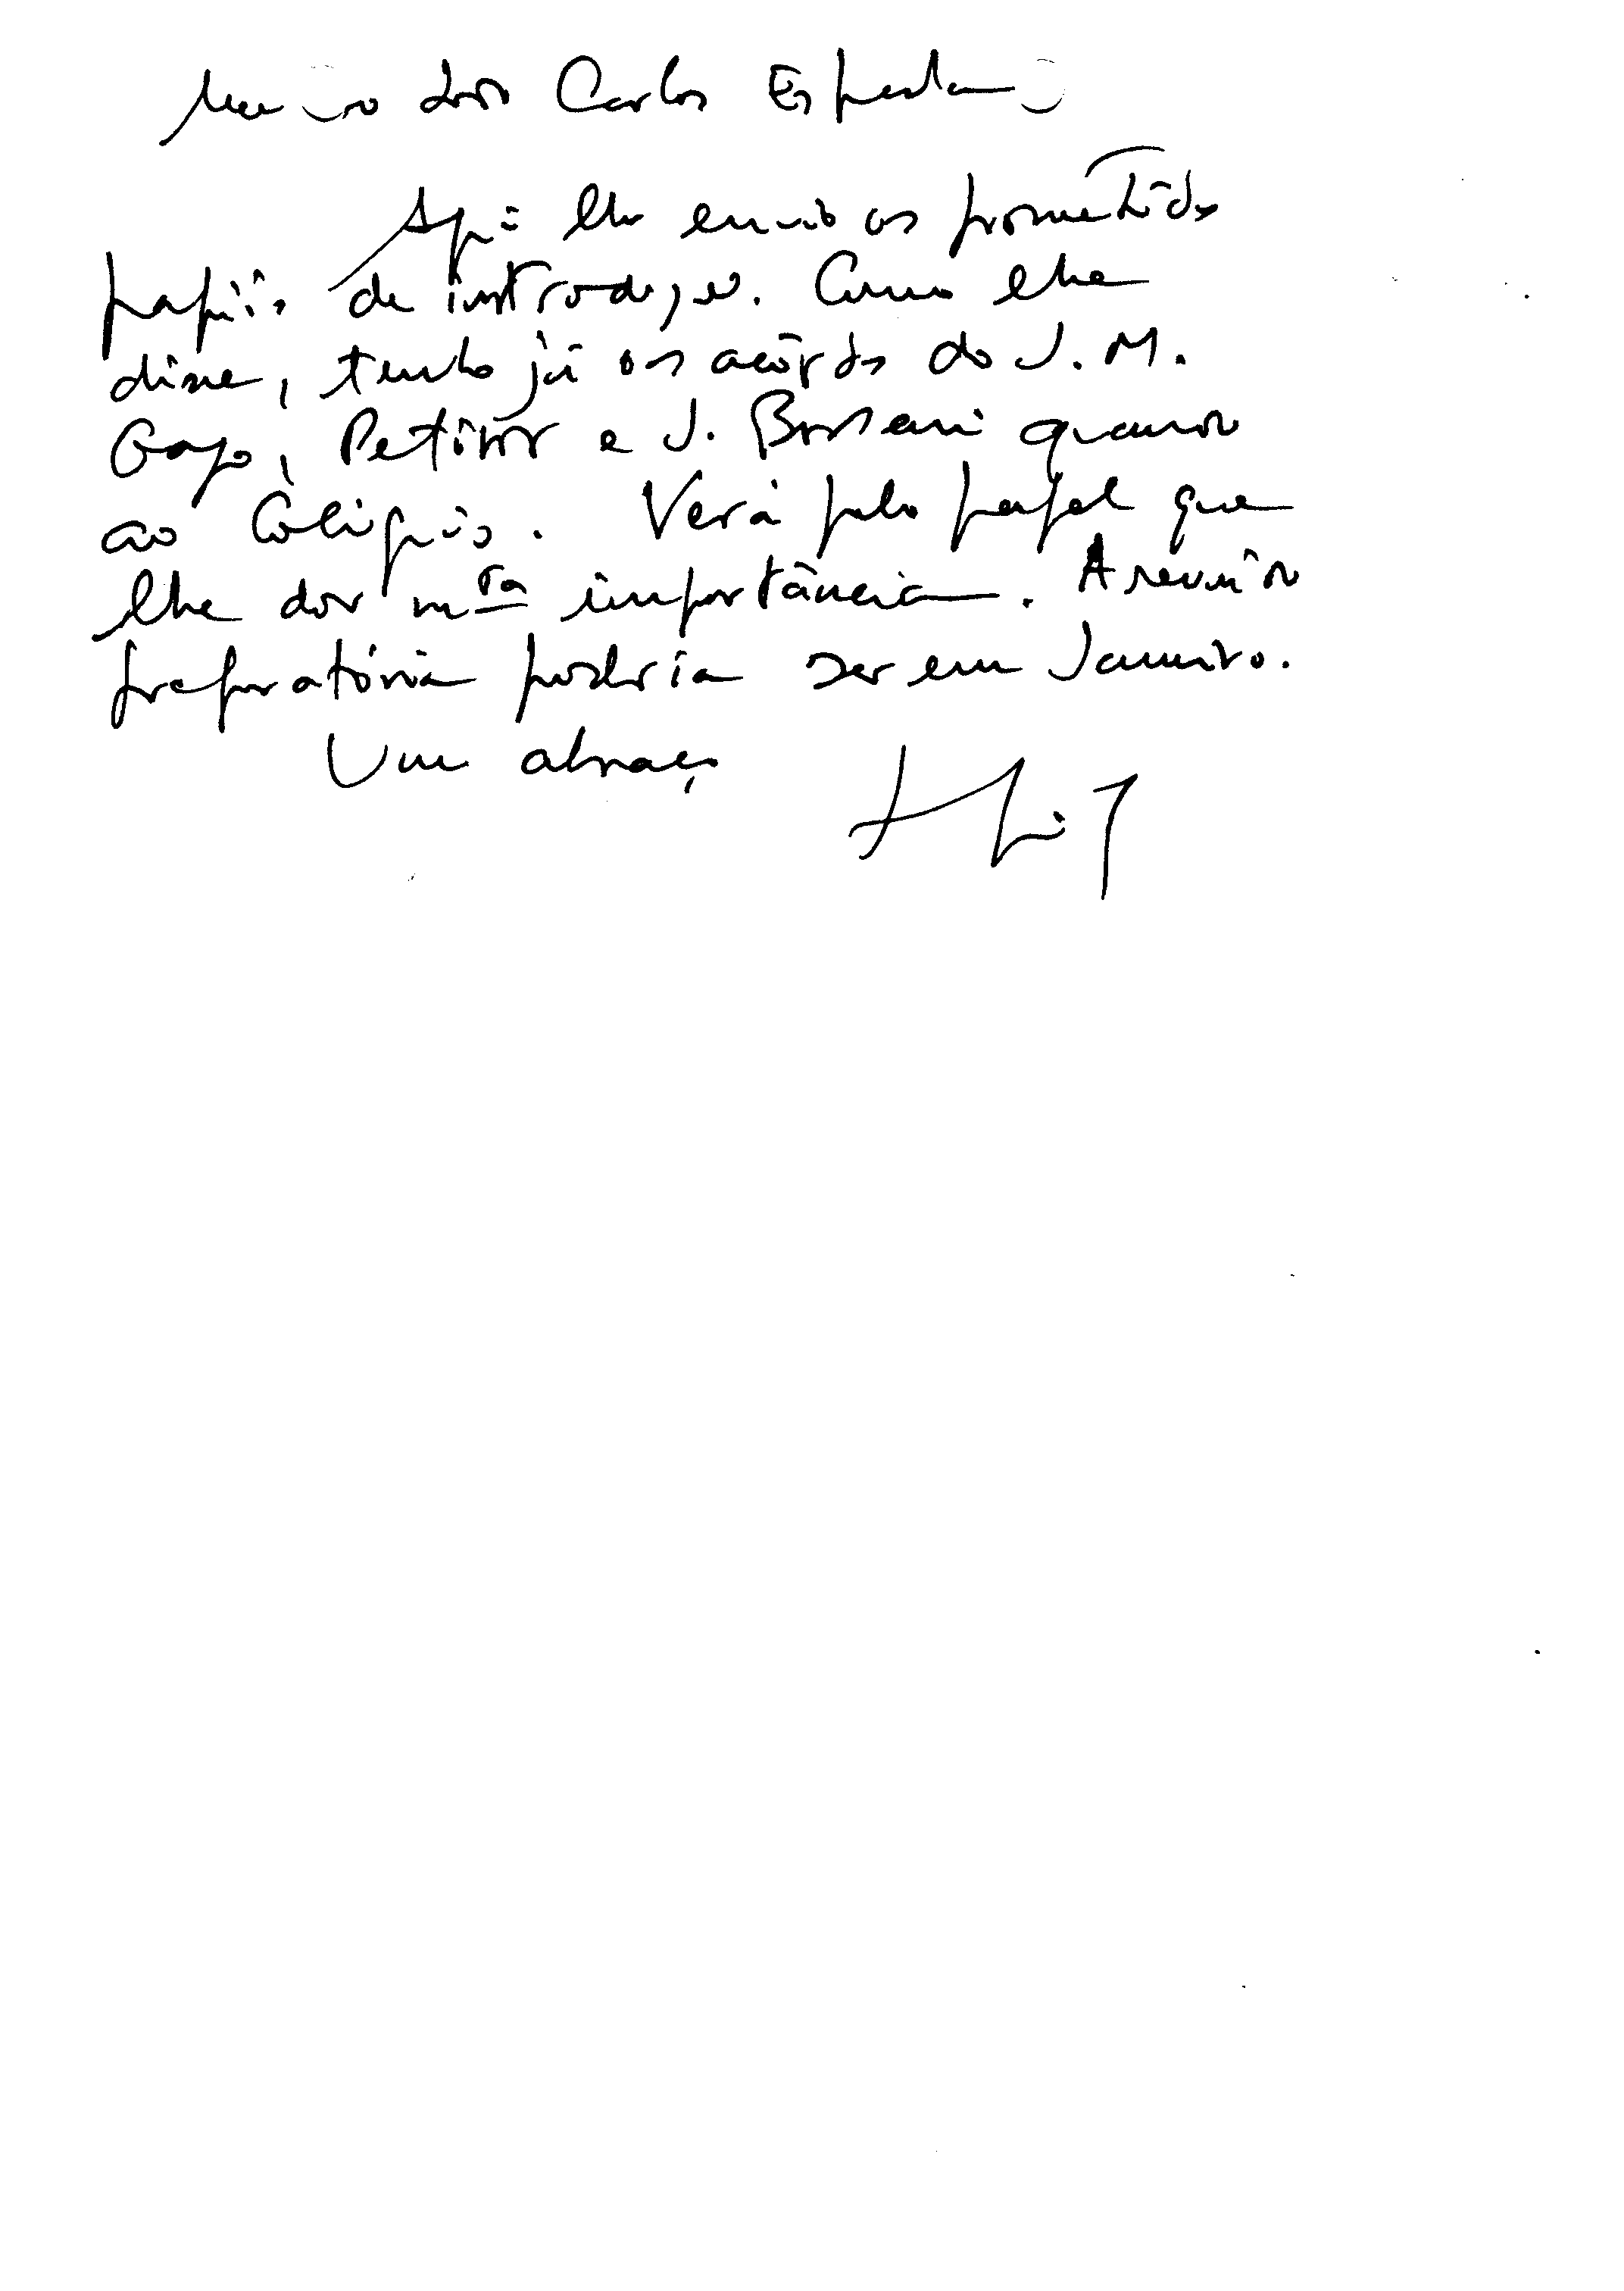 Meu caro João Carlos Espada
Aqui lhe envio os prometidos
papéis de introdução. Como lhe
disse, tenho já os acôrdos do J. M.
Gago, Petitot e J. Bossani quanto
ao Colóquio. Verá pelo papel que
lhe dou mta importância. A reunião
preparatória poderia ser em Janeiro.
Um abraço